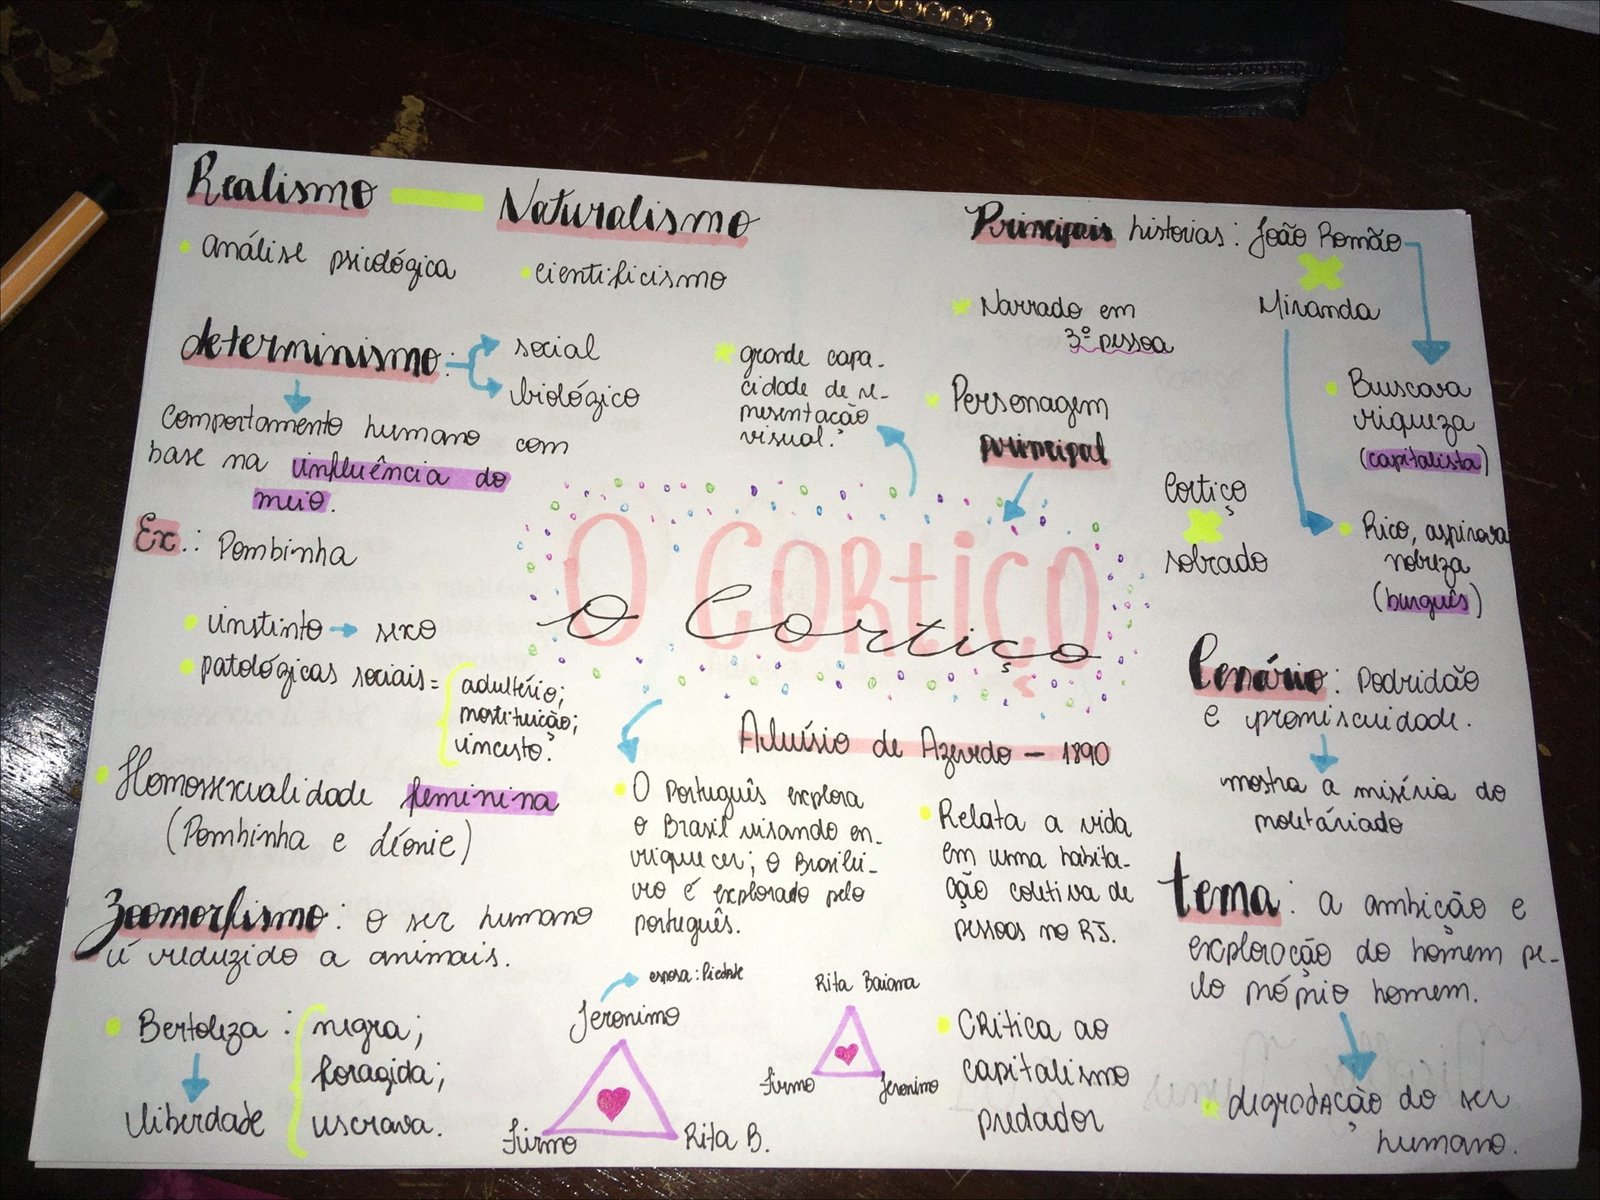 Realismo — Naturalismo
• análise psicológica
• cientificismo
determinismo:
social
biológico
comportamento humano com
base na influência do
meio.
Ex.: Pombinha
• instinto → sexo
• patológicas sociais =
adultério;
prostituição;
incesto.
• Homossexualidade feminina
(Pombinha e Léonie)
Zoomorfismo: o ser humano
é reduzido a animais.
• Bertoleza:
negra;
foragida;
escrava.
liberdade
grande capa-
cidade de re-
presentação
visual.
Principais histórias: João Romão
X
Miranda
Narrado em
3º pessoa
• Personagem
principal
• Buscava
riqueza
(capitalista)
Cortiço
X
sobrado
• Rico, aspirava
nobreza
(burguês)
O CORTIÇO
O Cortiço
Aluísio de Azevedo — 1890
• O Português explora
o Brasil visando en-
riquecer; o Brasilei-
ro é explorado pelo
português.
• Relata a vida
em uma habita-
ção coletiva de
pessoas no RJ.
esposa: Piedade
Jeronimo
Firmo
Rita B.
Rita Baiana
Firmo
Jeronimo
• Crítica ao
capitalismo
predador
Cenário: Podridão
e promiscuidade.
mostra a miséria do
proletáriado
tema: a ambição e
exploração do homem pe-
lo próprio homem.
degradação do ser
humano.